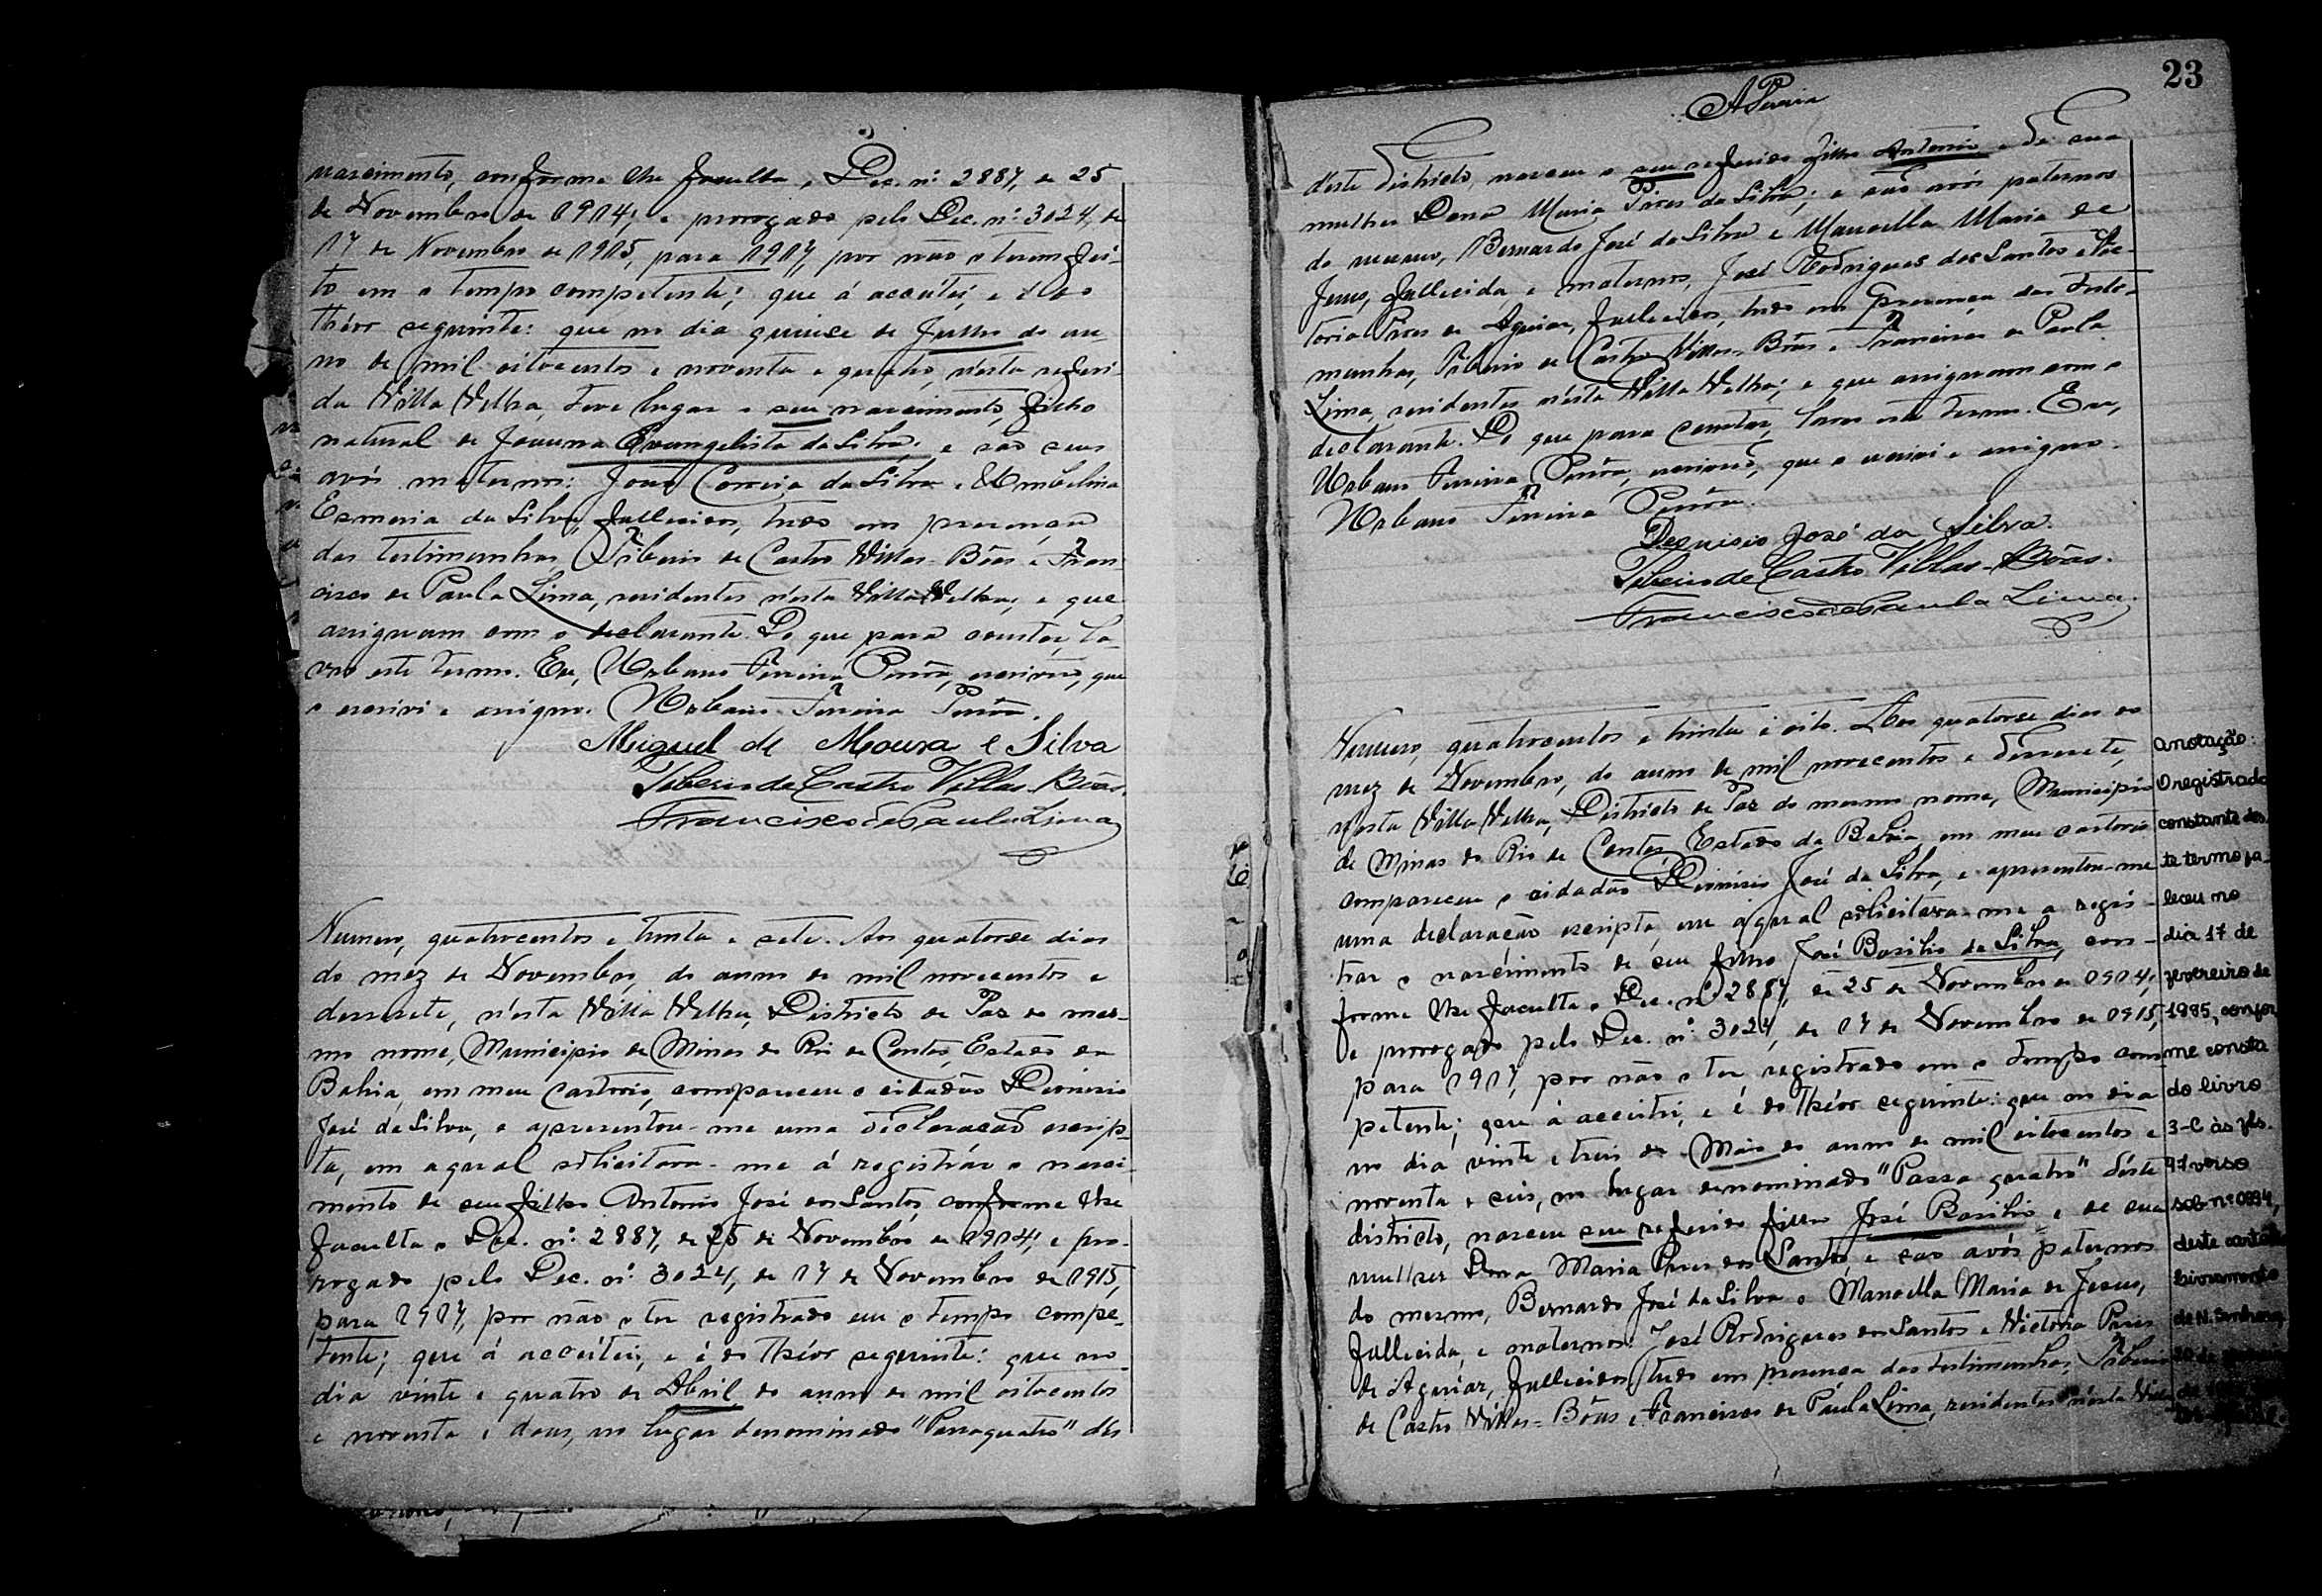 nascimento, conforme lhe faculta o Dec. nº 2887, de 25
de Novembro de 1914, e prorogado pelo Dec. nº 3024, de
17 de Novembro de 1915, para 1917, por não o terem fei-
to em o tempo competente; que á acceitei, e é do
théor seguinte: que no dia quinse de Julho do an-
no de mil oitocentos e noventa e quatro, n'esta referi-
da Villa Velha, teve lugar o seu nascimento, filho
natural de Joanna Evangelista da Silva; e são seus
avós maternos: João Correia da Silva e Umbelina
Esmeria da Silva, fallecidos, tudo em presença
das testimunhas, Tiberio de Castro Villas-Bôas e Fran-
cisco de Paula Lima, residentes n'esta Villa Velha; e que
assignam com o declarante. Do que para constar, la-
vro este termo. Eu, Urbano Ferreira, escrivão, que
o escrevi e assigno. Urbano Ferreira
Miguel de Moura e Silva
Tiberio de Castro Villas-Bôas.
Francisco de Paula Lima
Numero, quatrocentos e trinta e sete. Aos quatorse dias
do mez de Novembro, do anno de mil novecentos e
dessesete, n'esta Villa Velha, Districto de Paz do mes-
mo nome, Municipio de Minas do Rio de Contas, Estado da
Bahia, em meu Cartorio, compareceu o cidadão Dionisio
José da Silva, e apresentou-me uma declaração escrip-
ta, em a qual solicitava-me á registrár o nasci-
mento de seu filho Antonio José dos Santos, conforme lhe
faculta o Dec. nº 2887, de 25 de Novembro de 1914, e pro-
rogado pelo Dec. nº 3024, de 17 de Novembro de 1915,
para 1917, por não o ter registrado em o tempo compe-
tente; que á acceitei, e é do théor seguinte: que no
dia vinte e quatro de Abril do anno de mil oitocentos
e noventa e dous, no lugar denominado "Passaquatro" dés
23
d'este districto, nasceu o seu referido filho Antonio e de sua
mulher Dona Maria Pires da Silva; e são avós paternos
do mesmo, Bernardo José da Silva e Manoella Maria de
Jesus, fallecida, e maternos, José Rodrigues dos Santos e Vic-
toria Pires de Aguiar, fallecidos, tudo em presença das teste-
munhas, Tiberio de Castro Villas-Bôas e Francisco de Paula
Lima, residentes n'esta Villa Velha; e que assignam com o
declarante. Do que para constar, lavro este termo. Eu,
Urbano Ferreira, escrivão, que o escrevi e assigno.
Urbano Ferreira
Deonisio José da Silva.
Tiberio de Castro Villas-Bôas.
Francisco de Paula Lima.
Numero, quatrocentos e trinta e oito. Aos quatorse dias do
mez de Novembro, do anno de mil novecentos e dessesete,
n'esta Villa Velha, Districto de Paz do mesmo nome, Municipio
de Minas do Rio de Contas, Estado da Bahia, em meu cartorio
compareceu o cidadão Dionisio José da Silva, e apresentou-me
uma declaração escripta, em a qual solicitava-me a regis-
trar o nascimento de seu filho José Basilio da Silva, con-
forme lhe faculta o Dec. nº 2887, de 25 de Novembro de 1914,
e prorogado pelo Dec. nº 3024, de 17 de Novembro de 1915,
para 1917, por não o ter registrado em o tempo com-
petente; que á acceitei, e é do théor seguinte: que no dia
no dia vinte e treis de Maio do anno de mil oitocentos e
noventa e seis, no lugar denominado "Passa quatro" déste
districto, nasceu seu referido filho José Basilio e de sua
mulher Dona Maria Pires dos Santos, e são avós paternos
do mesmo, Bernardo José da Silva e Manoella Maria de Jesus,
fallecida, e maternos: José Rodrigues dos Santos e Victoria Pires
de Aguiar, fallecidos, tudo em presença das testimunhas, Tiberio
de Castro Villas-Bôas e Francisco de Paula Lima, residentes n'ésta Villa
anotação:
O registrado
constante des-
te termo fa-
leceu no
dia 17 de
fevereiro de
1985, confor
me consta
do livro
3-C às fls.
47 verso
sob nº 0894,
deste cartório
Livramento
de N. Senhora,